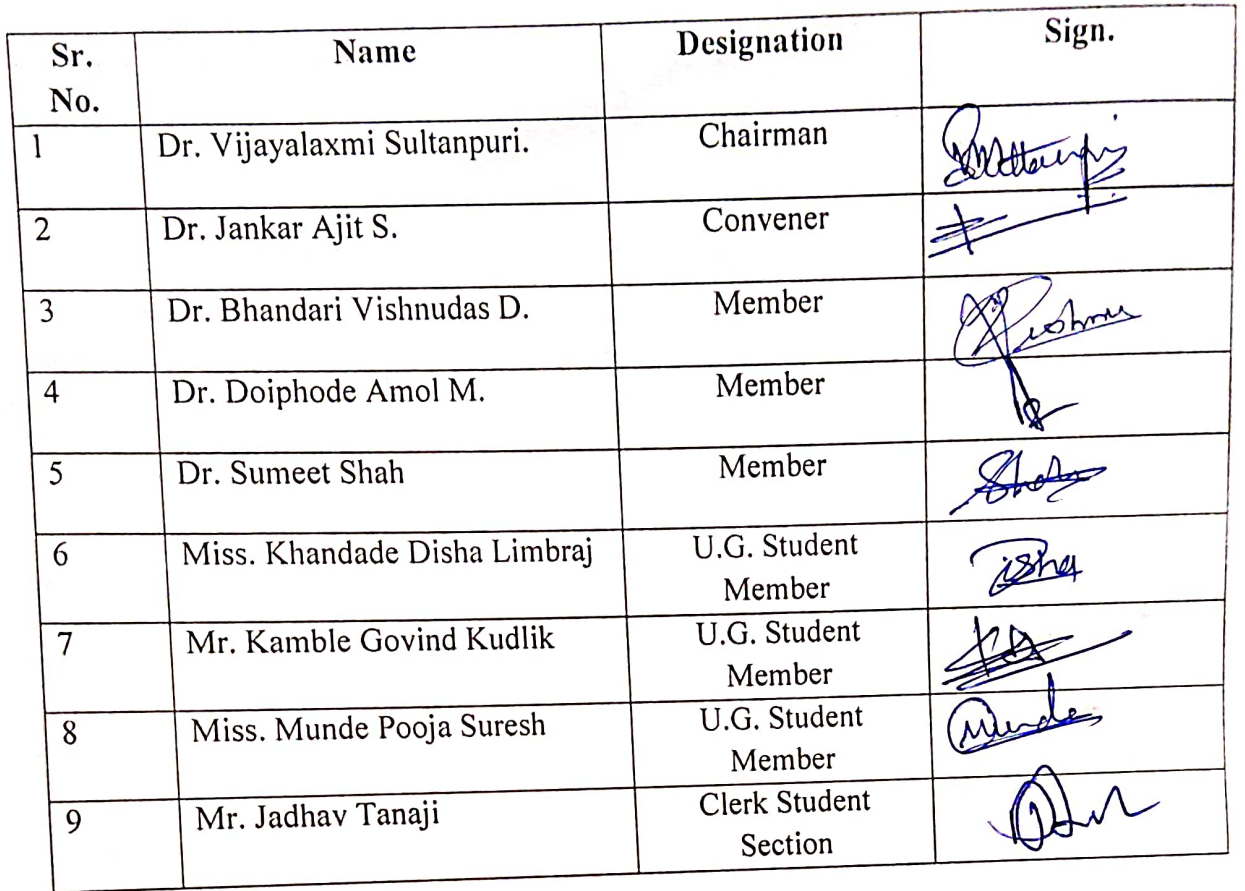 Sr. No. Name Designation Sign.
1 Dr. Vijayalaxmi Sultanpuri. Chairman
2 Dr. Jankar Ajit S. Convener
3 Dr. Bhandari Vishnudas D. Member
4 Dr. Doiphode Amol M. Member
5 Dr. Sumeet Shah Member
6 Miss. Khandade Disha Limbraj U.G. Student Member Disha
7 Mr. Kamble Govind Kudlik U.G. Student Member
8 Miss. Munde Pooja Suresh U.G. Student Member Munde
9 Mr. Jadhav Tanaji Clerk Student Section